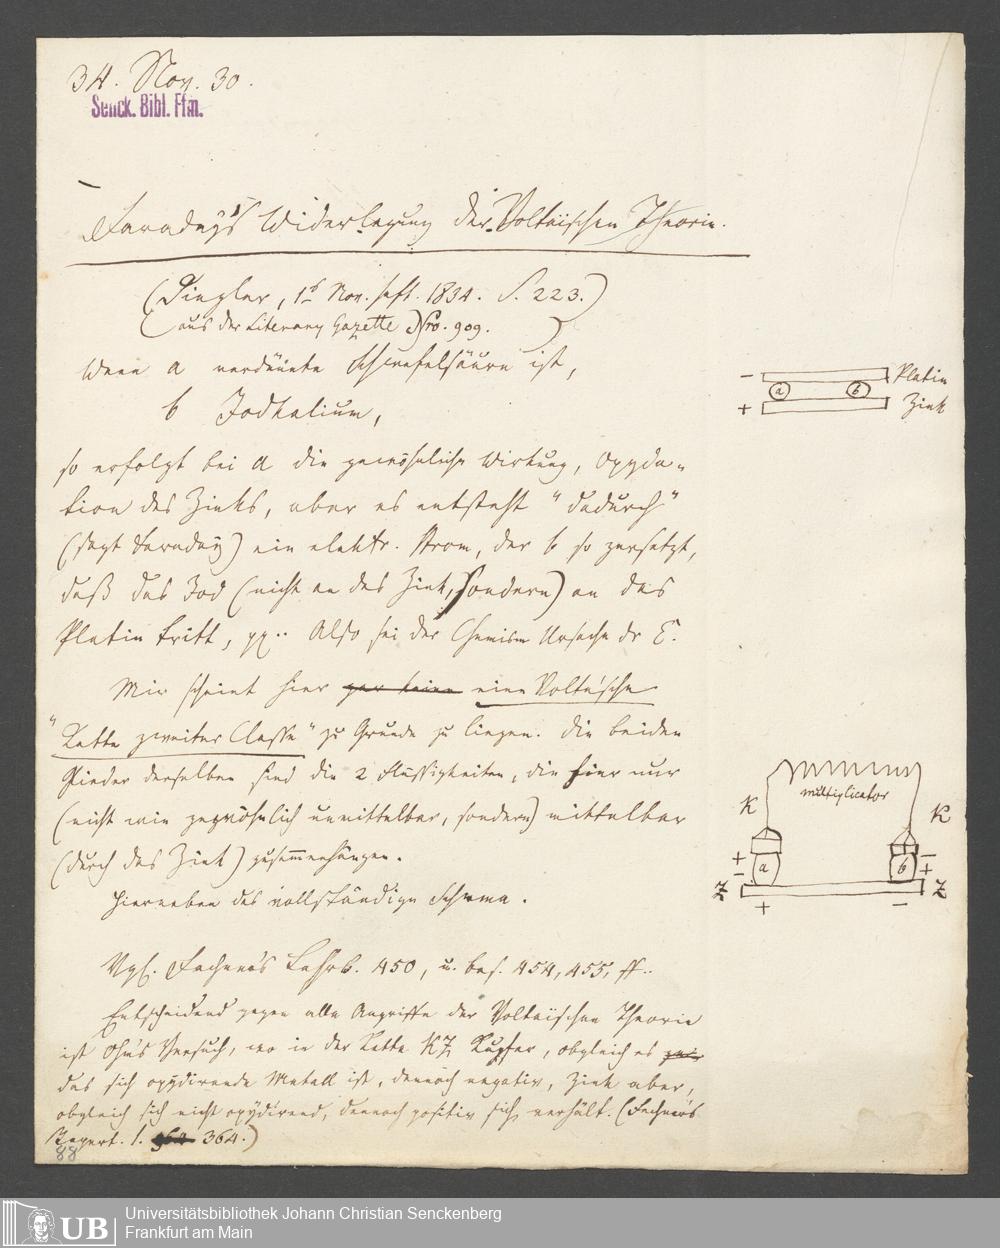 34. Nov. 30.
Senck. Bibl. Ffm.
Faraday's Widerlegung der Voltaischen Theorie.
(Dingler, 1s Nov. heft. 1834. S. 223.)
(aus der Literary Gazette Nro. 909. )
Wenn a verdünnte Schwefelsäure ist,
b Jodkalium,
− Platin
a b
+ Zink
so erfolgt bei a die gewöhnliche Wirkung, Oxyda-
tion des Zinks, aber es entsteht "dadurch"
(sagt Faraday) ein elektr. Strom, der b so zersetzt,
daß das Jod (nicht an das Zink, sondern) an das
Platin tritt, pp.. Also sei der Chemism Ursache dr E.
Mir scheint hier gar keine eine Volta'sche
"Kette zweiter Classe" zu Grunde zu liegen. Die beiden
Glieder derselben sind die 2 Flüssigkeiten, die hier nur
(nicht wie gewöhnlich unmittelbar, sondern) mittelbar
(durch das Zink) zusammenhängen.
Hierneben das vollständige Schema.
multiplicator
K K
+ −
− a b +
Z Z
+ −
Vgl. Fechner's Lehrb. 450, u. bes. 454, 455, ff..
Entscheidend gegen alle Angriffe der Voltaischen Theorie
ist Ohm's Versuch, wo in der Kette KZ Kupfer, obgleich es
das sich oxydirende Metall ist, dennoch negativ, Zink aber,
obgleich sich nicht oxydirend, dennoch positiv sich verhält. (Fechner's
Repert. 1. 364.)
88
UB Universitätsbibliothek Johann Christian Senckenberg
Frankfurt am Main